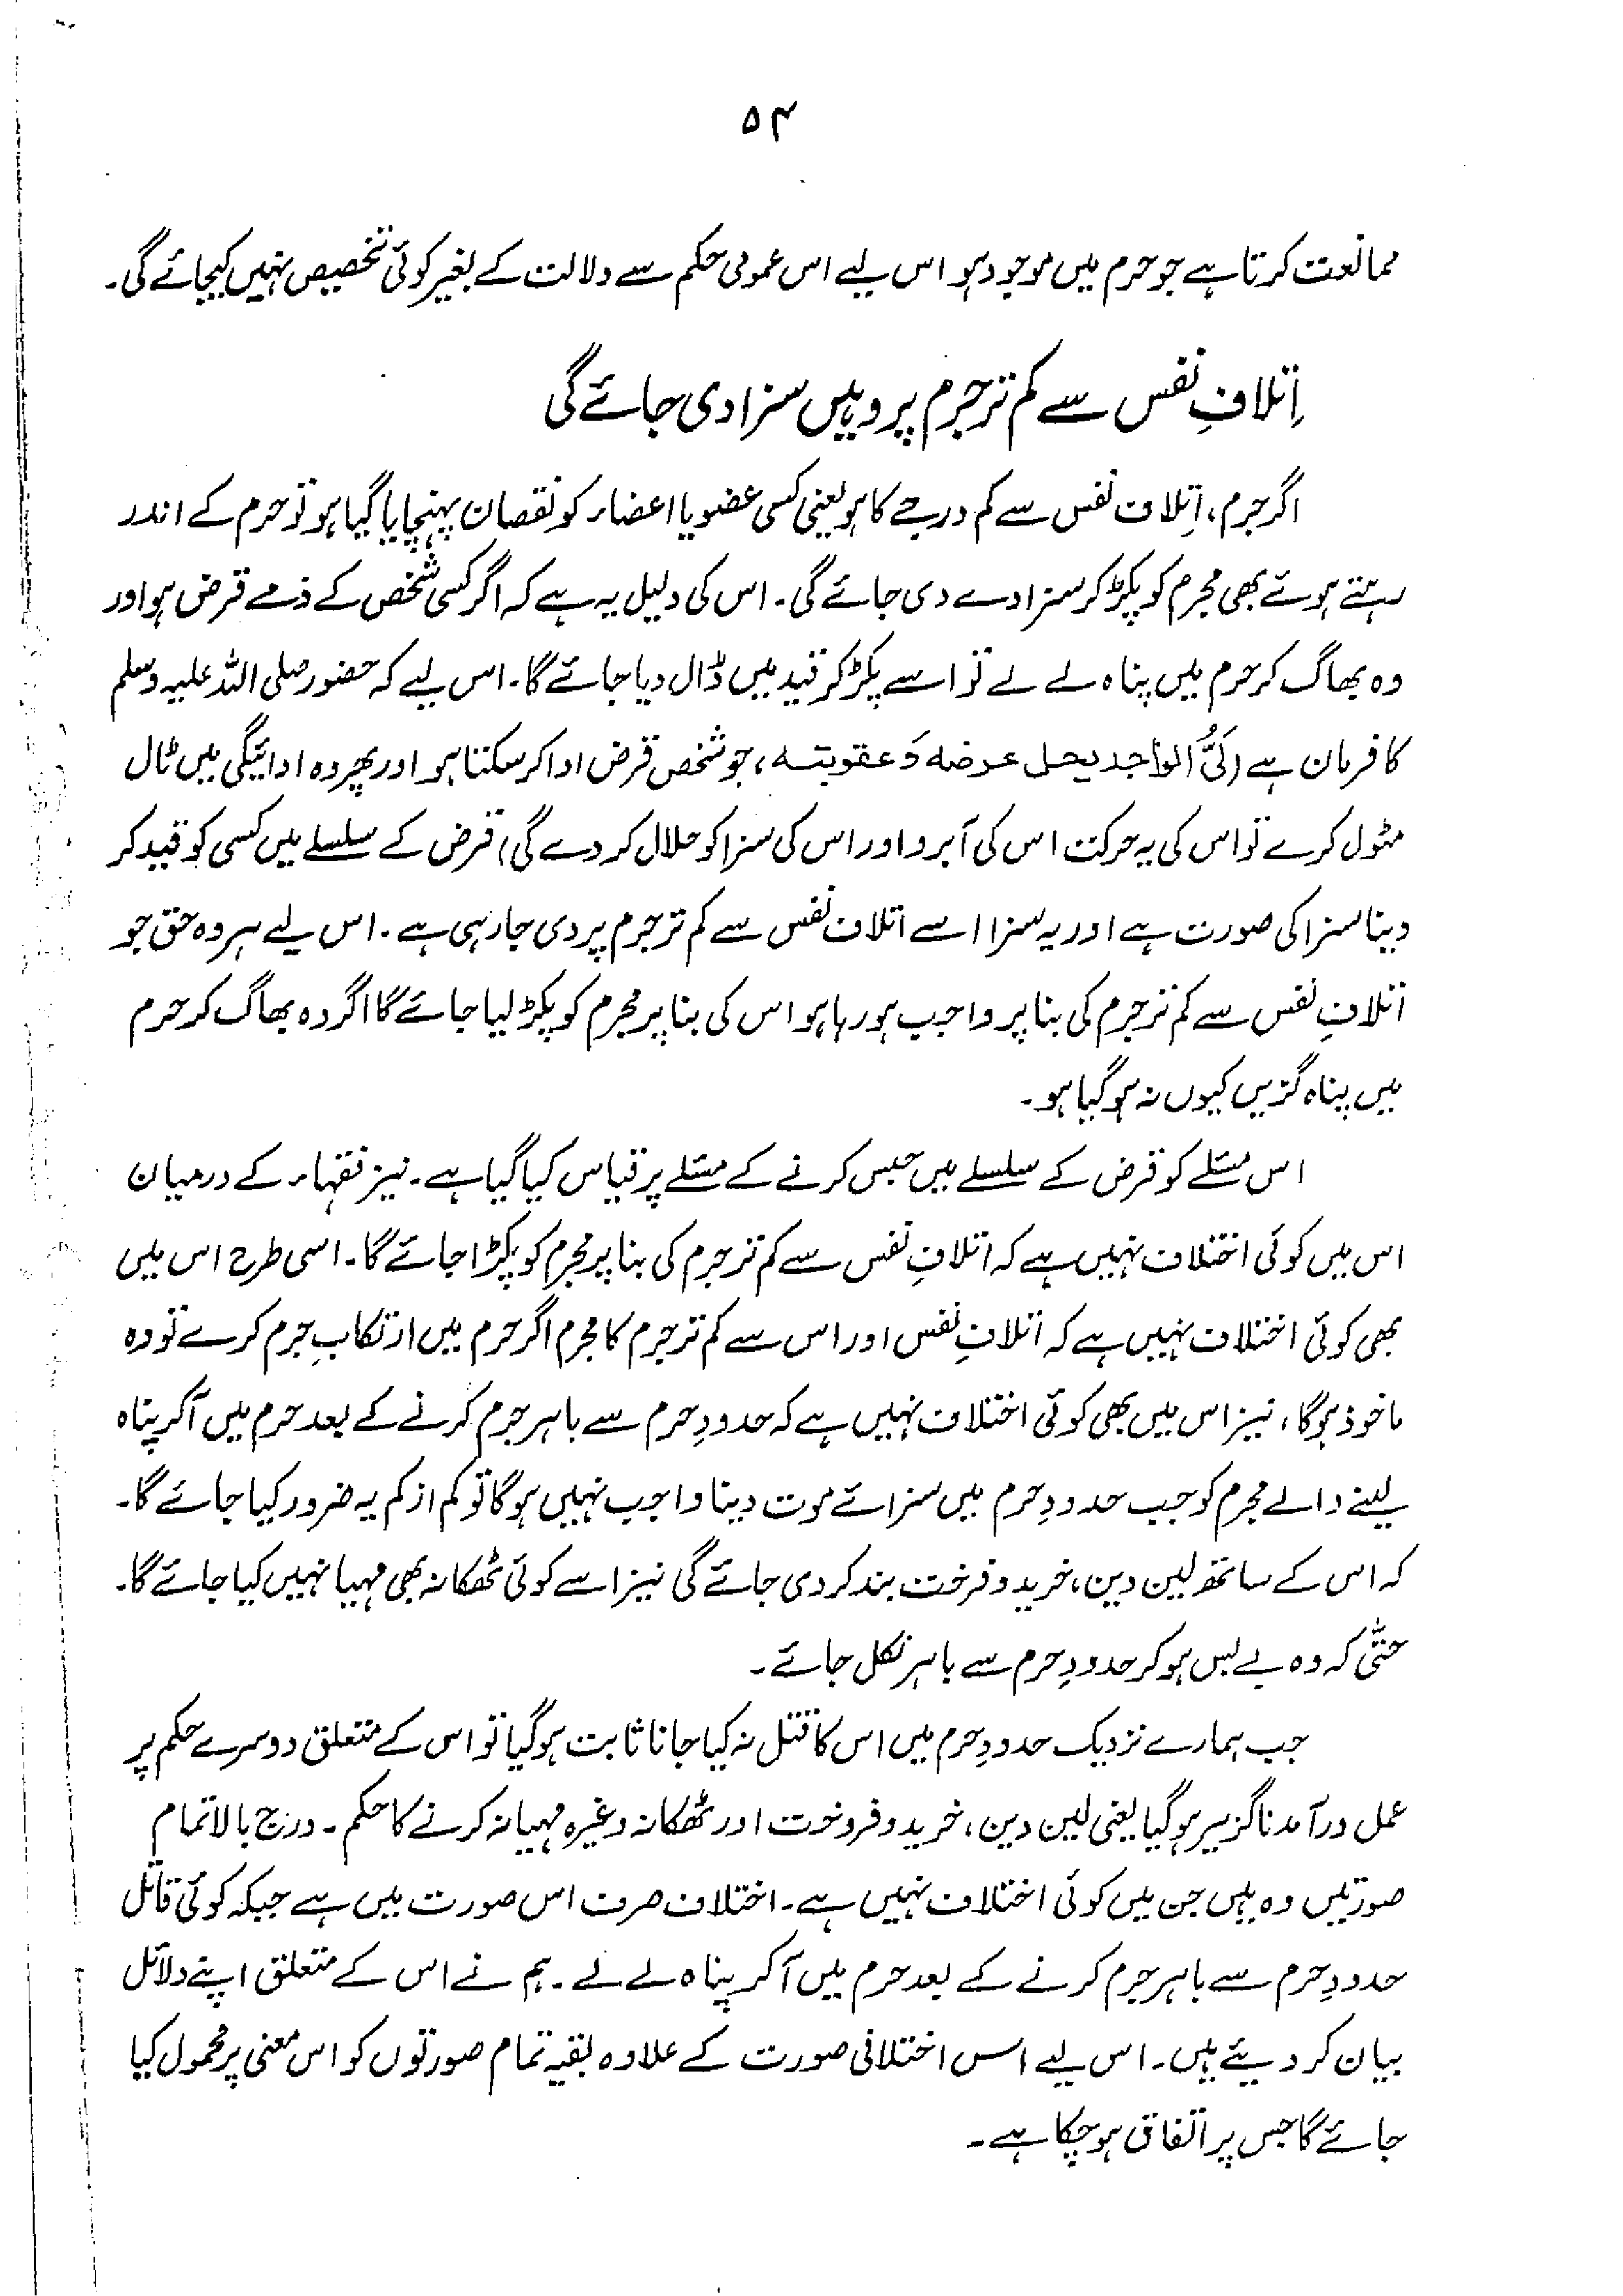 ۵۴
ممانعت کرتا ہے جو حرم میں موجود ہو اس لیے اس عمومی حکم سے دلالت کے بغیر کوئی تخصیص نہیں کیجائے گی۔
اِتلافِ نفس سے کم تر جرم پر وہیں سزا دی جائے گی
اگر جرم، اِتلاف نفس سے کم درجے کا ہو یعنی کسی عضو یا اعضاء کو نقصان پہنچایا گیا ہو تو حرم کے اندر
رہتے ہوئے بھی مجرم کو پکڑ کر سزا دے دی جائے گی۔ اس کی دلیل یہ ہے کہ اگر کسی شخص کے ذمے قرض ہو اور
وہ بھاگ کر حرم میں پناہ لے لے تو اسے پکڑ کر قید میں ڈال دیا جائے گا۔ اس لیے کہ حضور صلی اللہ علیہ وسلم
کا فرمان ہے (لَیُّ الواجد یحل عرضه وَعقوبته، جو شخص قرض ادا کر سکتا ہو اور پھر وہ ادائیگی میں ٹال
مٹول کرے تو اس کی یہ حرکت اس کی آبرو اور اس کی سزا کو حلال کر دے گی) قرض کے سلسلے میں کسی کو قید کر
دینا سزا کی صورت ہے اور یہ سزا اسے اتلاف نفس سے کم تر جرم پر دی جا رہی ہے۔ اس لیے ہر وہ حق جو
اتلافِ نفس سے کم تر جرم کی بنا پر واجب ہو رہا ہو اس کی بنا پر مجرم کو پکڑ لیا جائے گا اگر وہ بھاگ کر حرم
میں پناہ گزیں کیوں نہ ہو گیا ہو۔
اس مسئلے کو قرض کے سلسلے میں حبس کرنے کے مسئلے پر قیاس کیا گیا ہے۔ نیز فقہاء کے درمیان
اس میں کوئی اختلاف نہیں ہے کہ اتلافِ نفس سے کم تر جرم کی بنا پر مجرم کو پکڑا جائے گا۔ اسی طرح اس میں
بھی کوئی اختلاف نہیں ہے کہ اتلافِ نفس اور اس سے کم تر جرم کا مجرم اگر حرم میں ارتکابِ جرم کرے تو وہ
ماخوذ ہوگا، نیز اس میں بھی کوئی اختلاف نہیں ہے کہ حدودِ حرم سے باہر جرم کرنے کے بعد حرم میں آ کر پناہ
لینے والے مجرم کو جب حدودِ حرم میں سزائے موت دینا واجب نہیں ہوگا تو کم از کم یہ ضرور کیا جائے گا۔
کہ اس کے ساتھ لین دین، خرید و فرخت بند کر دی جائے گی نیز اسے کوئی ٹھکانہ بھی مہیا نہیں کیا جائے گا۔
حتّٰی کہ وہ بے بس ہو کر حدودِ حرم سے باہر نکل جائے۔
جب ہمارے نزدیک حدودِ حرم میں اس کا قتل نہ کیا جانا ثابت ہو گیا تو اس کے متعلق دوسرے حکم پر
عمل درآمد ناگزیر ہو گیا یعنی لین دین، خرید و فروخت اور ٹھکانہ وغیرہ مہیا نہ کرنے کا حکم۔ درج بالا تمام
صورتیں وہ ہیں جن میں کوئی اختلاف نہیں ہے۔ اختلاف صرف اس صورت میں ہے جبکہ کوئی قاتل
حدودِ حرم سے باہر جرم کرنے کے بعد حرم میں آ کر پناہ لے لے۔ ہم نے اس کے متعلق اپنے دلائل
بیان کر دیئے ہیں۔ اس لیے اس اختلافی صورت کے علاوہ بقیہ تمام صورتوں کو اس معنی پر محمول کیا
جائے گا جس پر اتفاق ہو چکا ہے۔